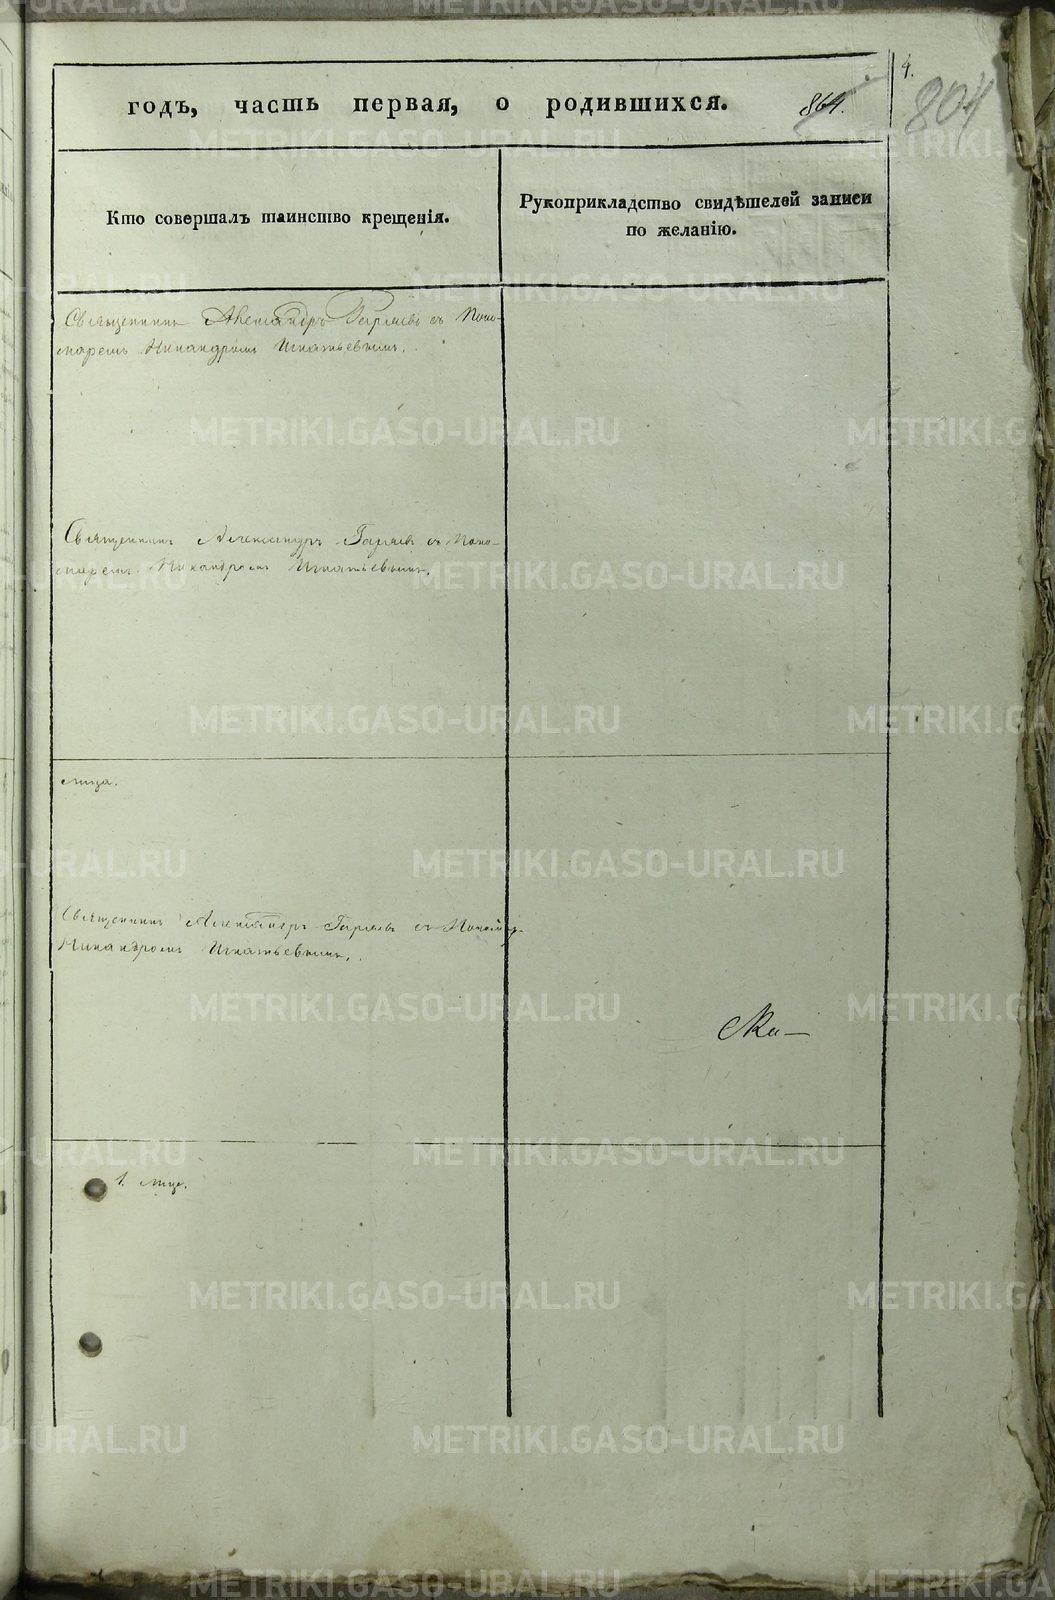 4.
804
годъ, часть первая, о родившихся. 864.
Кто совершалъ таинство крещенія.
Рукоприкладство свидѣтелей записи
по желанію.
Священникъ Александръ Гаряевъ съ Поно-
маремъ Никандромъ Игнатьевымъ.
Священникъ Александръ Гаряевъ съ Поно-
маремъ Никандромъ Игнатьевымъ.
лица.
Священникъ Александръ Гаряевъ съ
Никандромъ Игнатьевымъ.
1. лице.
METRIKI.GASO-URAL.RU